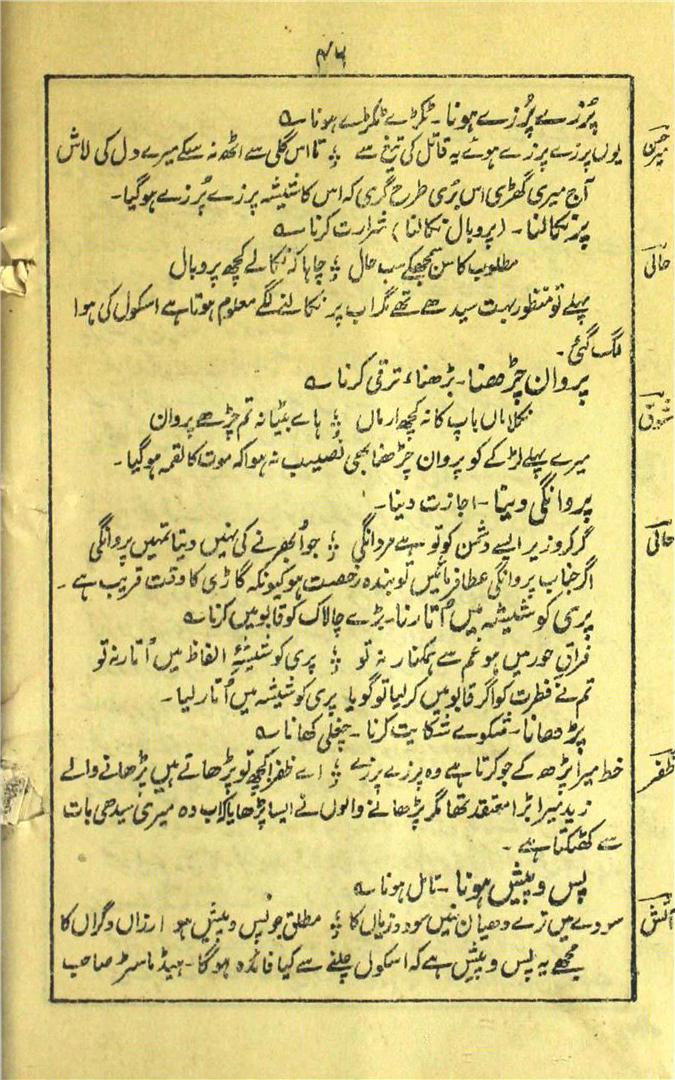 ۴۶
پُرزے پُرزے ہونا - ٹکڑے ٹکڑے ہونا ؎
میرحسن
یوں پرزے پرزے ہوئے یہ قاتل کی تیغ سے ؛ تا اس گلی سے اٹھ نہ سکے میرے دل کی لاش
آج میری گھڑی اس بُری طرح گری کہ اس کا شیشہ پرزے پُرزے ہوگیا۔
پر نکالنا - (پروبال نکالنا) شرارت کرنا ؎
حالی
مطلوب کا سن سمجھ کے سب حال ؛ چاہا کہ نکالے کچھ پروبال
پہلے تو منظور بہت سیدھے تھے مگر اب پر نکالنے لگے معلوم ہوتا ہے اسکول کی ہوا
لگ گئی۔
پروان چڑھنا - بڑھنا، ترقی کرنا ؎
شوق
نکلا ماں باپ کا نہ کچھ ارماں ؛ ہائے بیٹا نہ تم چڑھے پروان
میرے پہلے لڑکے کو پروان چڑھنا بھی نصیب نہ ہوا کہ موت کا لقمہ ہوگیا۔
پروانگی دینا - اجازت دینا۔
حالی
گر کرو زیر ایسے دشمن کو تو ہے مردانگی ؛ جو اُبھرنے کی نہیں دیتا تمہیں پروانگی
اگر جناب پروانگی عطا فرمائیں تو بندہ رخصت ہو کیونکہ گاڑی کا وقت قریب ہے۔
پری کو شیشہ میں اُتارنا - بڑے چالاک کو قابو میں کرنا ؎
فراقِ حور میں ہو غم سے ہمکنار نہ تو ؛ پری کو شیشۂ الفاظ میں اُتار نہ تو
تم نے فطرت کو اگر قابو میں کرلیا تو گویا پری کو شیشہ میں اُتار لیا۔
پڑھانا - شکوے شکایت کرنا - چغلی کھانا ؎
ظفر
خط میرا پڑھ کے جو کرتا ہے وہ پرزے پرزے ؛ اے ظفر کچھ تو پڑھاتے ہیں پڑھانے والے
زید میرا بڑا معتقد تھا مگر پڑھانے والوں نے ایسا پڑھایا کہ اب وہ میری سیدھی بات
سے کھٹکتا ہے۔
پس و پیش ہونا - تامل ہونا ؎
آتش
سودے میں ترے دھیان نہیں سود و زیاں کا ؛ مطلق جو پس و پیش ہو ارزاں و گراں کا
مجھے یہ پس و پیش ہے کہ اسکول چلنے سے کیا فائدہ ہوگا - ہیڈ ماسٹر صاحب